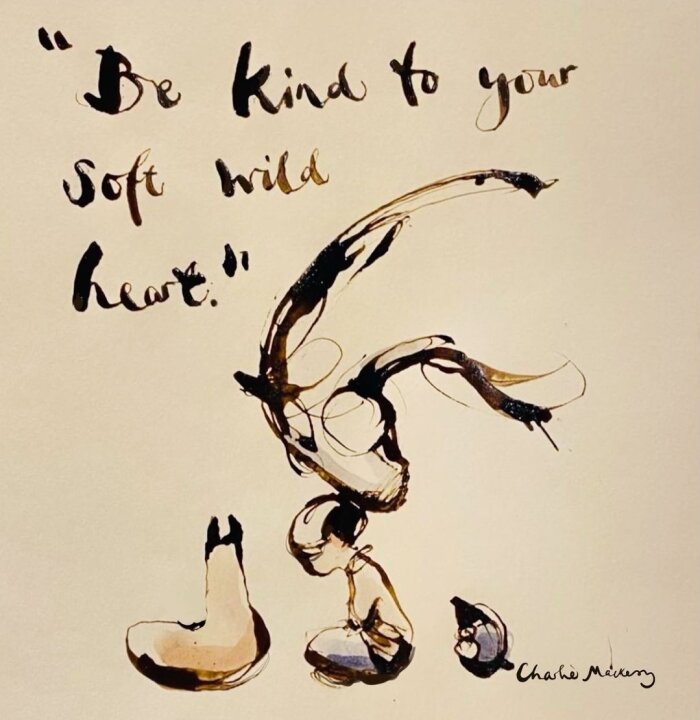 "Be kind to your
soft wild
heart."
Charlie Mackesy